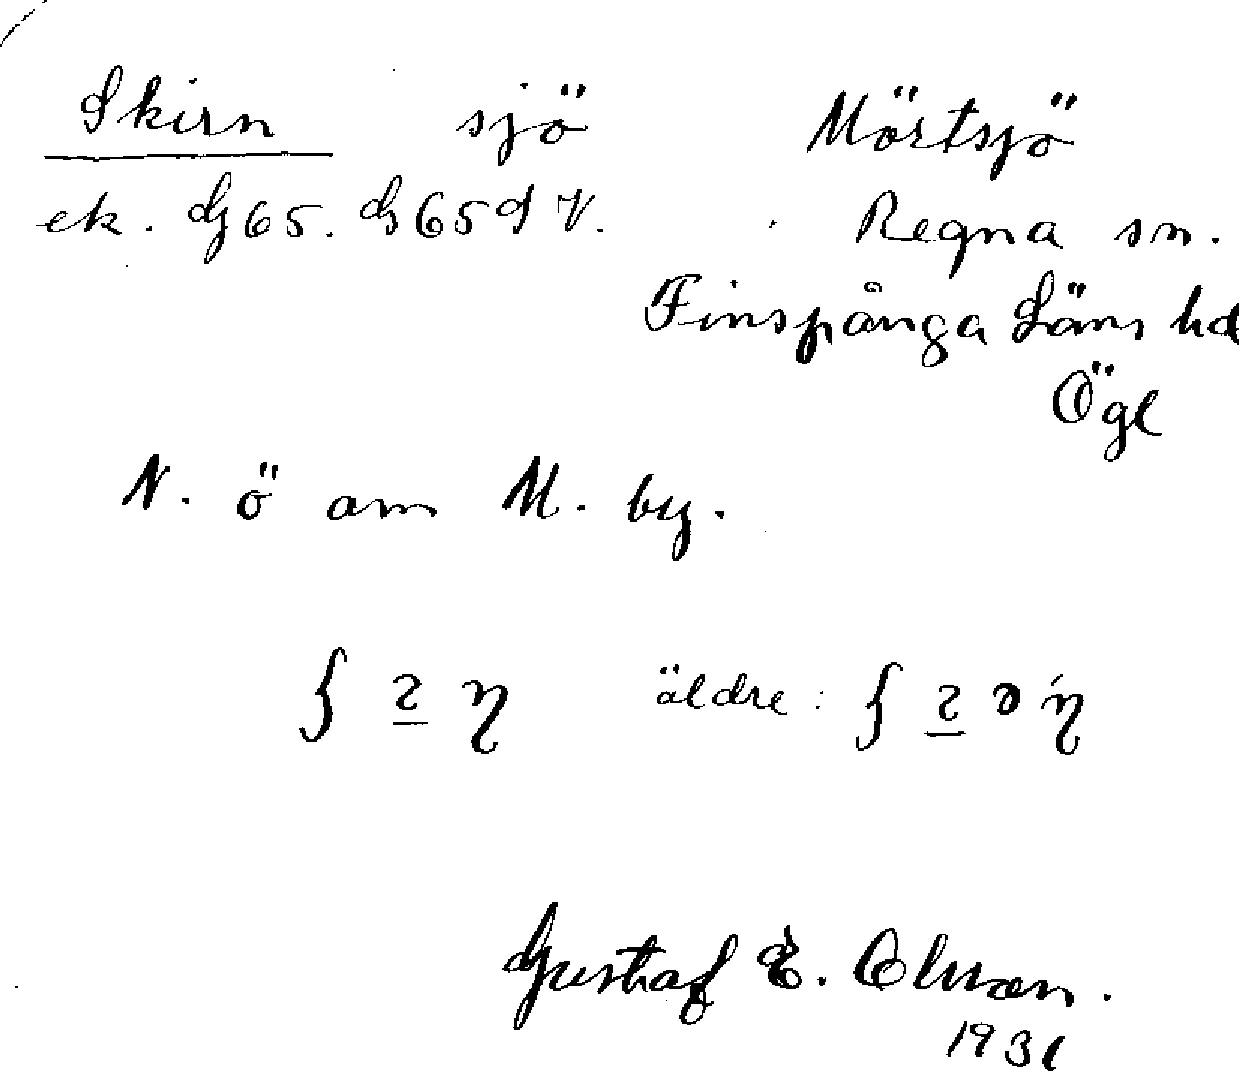 Skirn sjö Mörtsjö
ek. G65. G65d V. Regna sn.
Finspånga Läns hd
Ögl
N. ö om M. by.
äldre:
Gustaf E.
1931